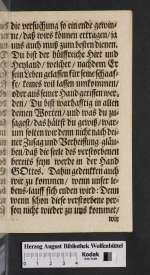 die versuchung so ein ende gewin-
ne/ daß wirs können ertragen/ ja
uns auch muß zum besten dienen.
Du bist der hülffreiche Hirt und
Heyland/ welcher/ nachdem Er
sein Leben gelassen für seine schaaf-
fe/ keins wil lassen umkommen/
oder aus seiner Hand gerissen wer-
den/ Du bist warhafftig in allen
deinen Worten/ und was du zu-
sagest/ das hältst du gewiß/ war-
um solten wir denn nicht nach dei-
ner Zusag und Verheissung gläu-
ben/ daß die seele des verstorbenen
bereits seyn werde in der Hand
GOttes. Dahin gedencken auch
wir zu kommen/ wenn unser le-
bens-lauff sich enden wird: Denn
wenn schon diese verstorbene per-
son nicht wieder zu uns kommet/
wir
Herzog August Bibliothek Wolfenbüttel
Kodak